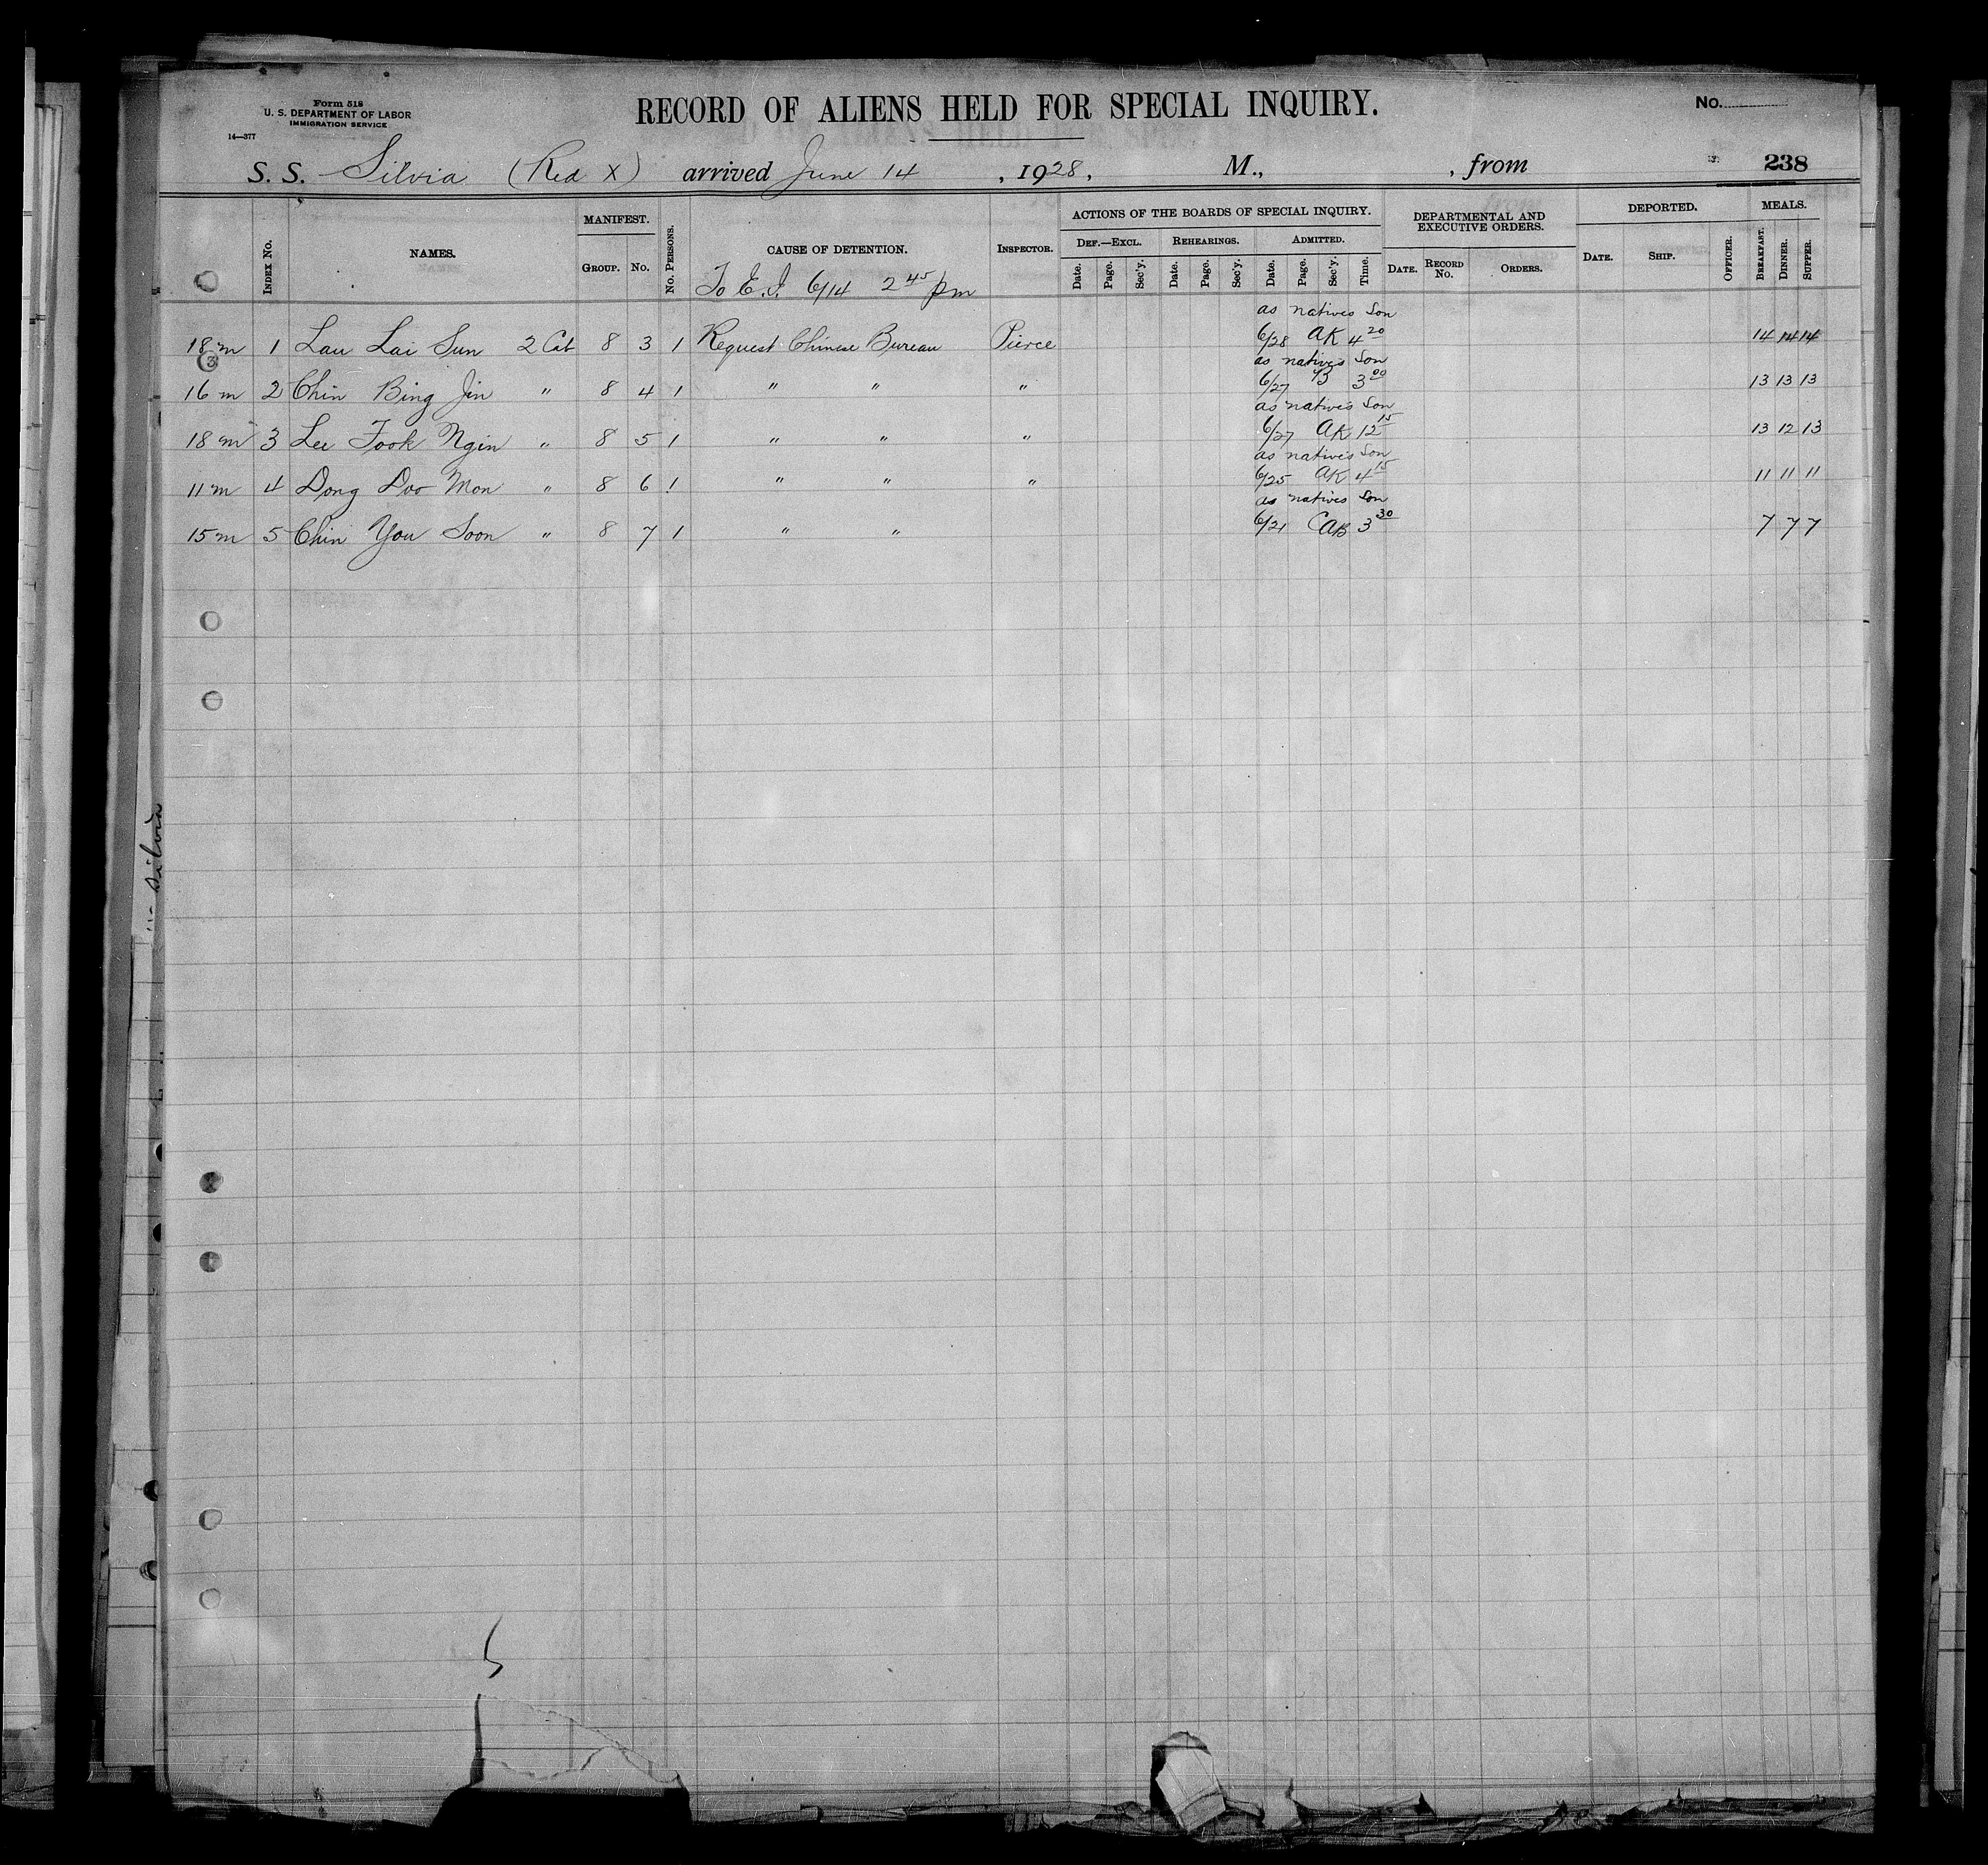 Form 518
U. S. DEPARTMENT OF LABOR
IMMIGRATION SERVICE
14—377
RECORD OF ALIENS HELD FOR SPECIAL INQUIRY.
No.
238
S. S. Silvia (Red X) arrived June 14, 1928, M., , from
INDEX No.
NAMES.
MANIFEST.
GROUP. No.
No. PERSONS.
CAUSE OF DETENTION.
INSPECTOR.
ACTIONS OF THE BOARDS OF SPECIAL INQUIRY.
DEF.—EXCL. REHEARINGS. ADMITTED.
Date. Page. Sec'y. Date. Page. Sec'y. Date. Page. Sec'y. Time.
DEPARTMENTAL AND EXECUTIVE ORDERS.
DATE. RECORD No. ORDERS.
DEPORTED.
DATE. SHIP. OFFICER.
MEALS.
BREAKFAST. DINNER. SUPPER.
To E.I. 6/14 2 45 pm
as natives Son
18 m 1 Lau Lai Sun 2 Cab 8 3 1 Request Chinese Bureau Pierce 6/28 AK 4 20 14 14 14
as natives Son
16 m 2 Chin Bing Jin " 8 4 1 " " " 6/27 B 3 00 13 13 13
as natives Son
18 m 3 Lee Fook Ngin " 8 5 1 " " " 6/27 AK 12 15 13 12 13
as natives Son
11 m 4 Dong Doo Mon " 8 6 1 " " " 6/25 AK 4 15 11 11 11
as natives Son
15 m 5 Chin You Soon " 8 7 1 " " 6/21 CAB 3 30 7 7 7
Silvia